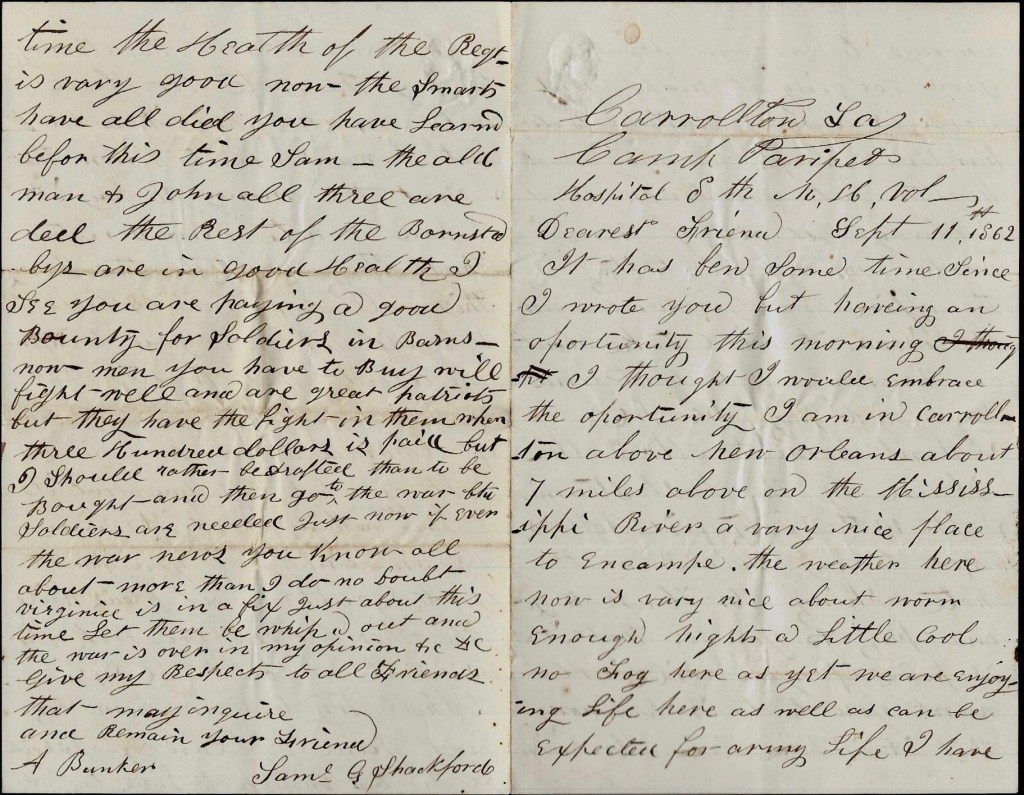 Carrollton La
Camp Paripets
Hospital 8 th N, H, Vol
Dearest Friend Sept 11,th 1862
It has ben Some time Since
I wrote you but haveing an
oportunity this morning I thoug
I thought I would Embrace
the oportunity I am in Carroll-
ton above New Orleans about
7 miles above on the Mississ-
ippi River a vary nice place
to Encampe. the weather here
now is vary nice about worm
Enough nights a Little Cool
no Fog here as yet we are Enjoy-
ing Life here as well as can be
Expected for army Life I have
time the Health of the Regt
is vary good now - the Smarts
have all died you have Learnd
befor this time Sam - the old
man & John all three are
ded the Rest of the Barnstd
bys are in good Health I
See you are paying a good
Bounty for Soldiers in Barns-
now men you have to Buy will
fight well and are great patriots
but they have the fight in them when
three Hundred dollars is paid but
I Should rather be drafted than to be
Bought and then go to the war but
Soldiers are needed Just now if Ever
the war news you Know all
about more than I do no doubt
virginice is in a fix Just about this
time Let them be whip d out and
the war is over in my opinion &c &c
Give my Respects to all Friends
that may inquire
and Remain your Friend
A Bunker Saml G Shackford